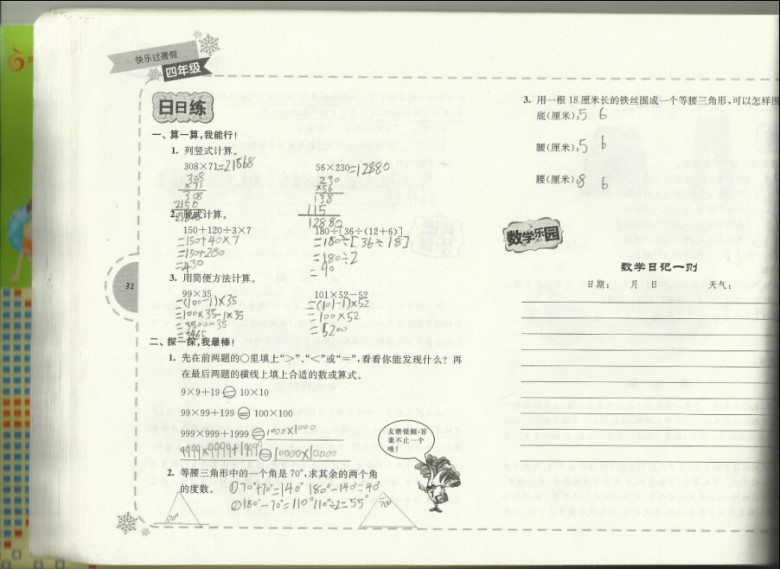 快乐过暑假
四年级
日日练
一、算一算,我能行!
1. 列竖式计算。
308×71=21868
56×230=12880
308
×71
308
2156
21868
230
×56
138
115
12880
2. 脱式计算。
150+120÷3×7
=150+40×7
=150+280
=430
180÷[36÷(12+6)]
=180÷[36÷18]
=180÷2
=90
3. 用简便方法计算。
99×35
=(100-1)×35
=100×35-1×35
=3500-35
=3465
101×52-52
=(101-1)×52
=100×52
=5200
二、探一探,我最棒!
1. 先在前两题的○里填上“>”、“<”或“=”,看看你能发现什么?再
在最后两题的横线上填上合适的数或算式。
9×9+19=10×10
99×99+199=100×100
999×999+1999=1000×1000
9999×9999+19999=10000×10000
友情提醒:答
案不止一个
哦!
2. 等腰三角形中的一个角是70°,求其余的两个角
的度数。①70°+70°=140° 180°-140°=40°
②180°-70°=110° 110°÷2=55°
70°
70°
32
3. 用一根18厘米长的铁丝围成一个等腰三角形,可以怎样围
底(厘米):5 6
腰(厘米):5 6
腰(厘米):8 6
数学乐园
数学日记一则
日期: 月 日 天气: